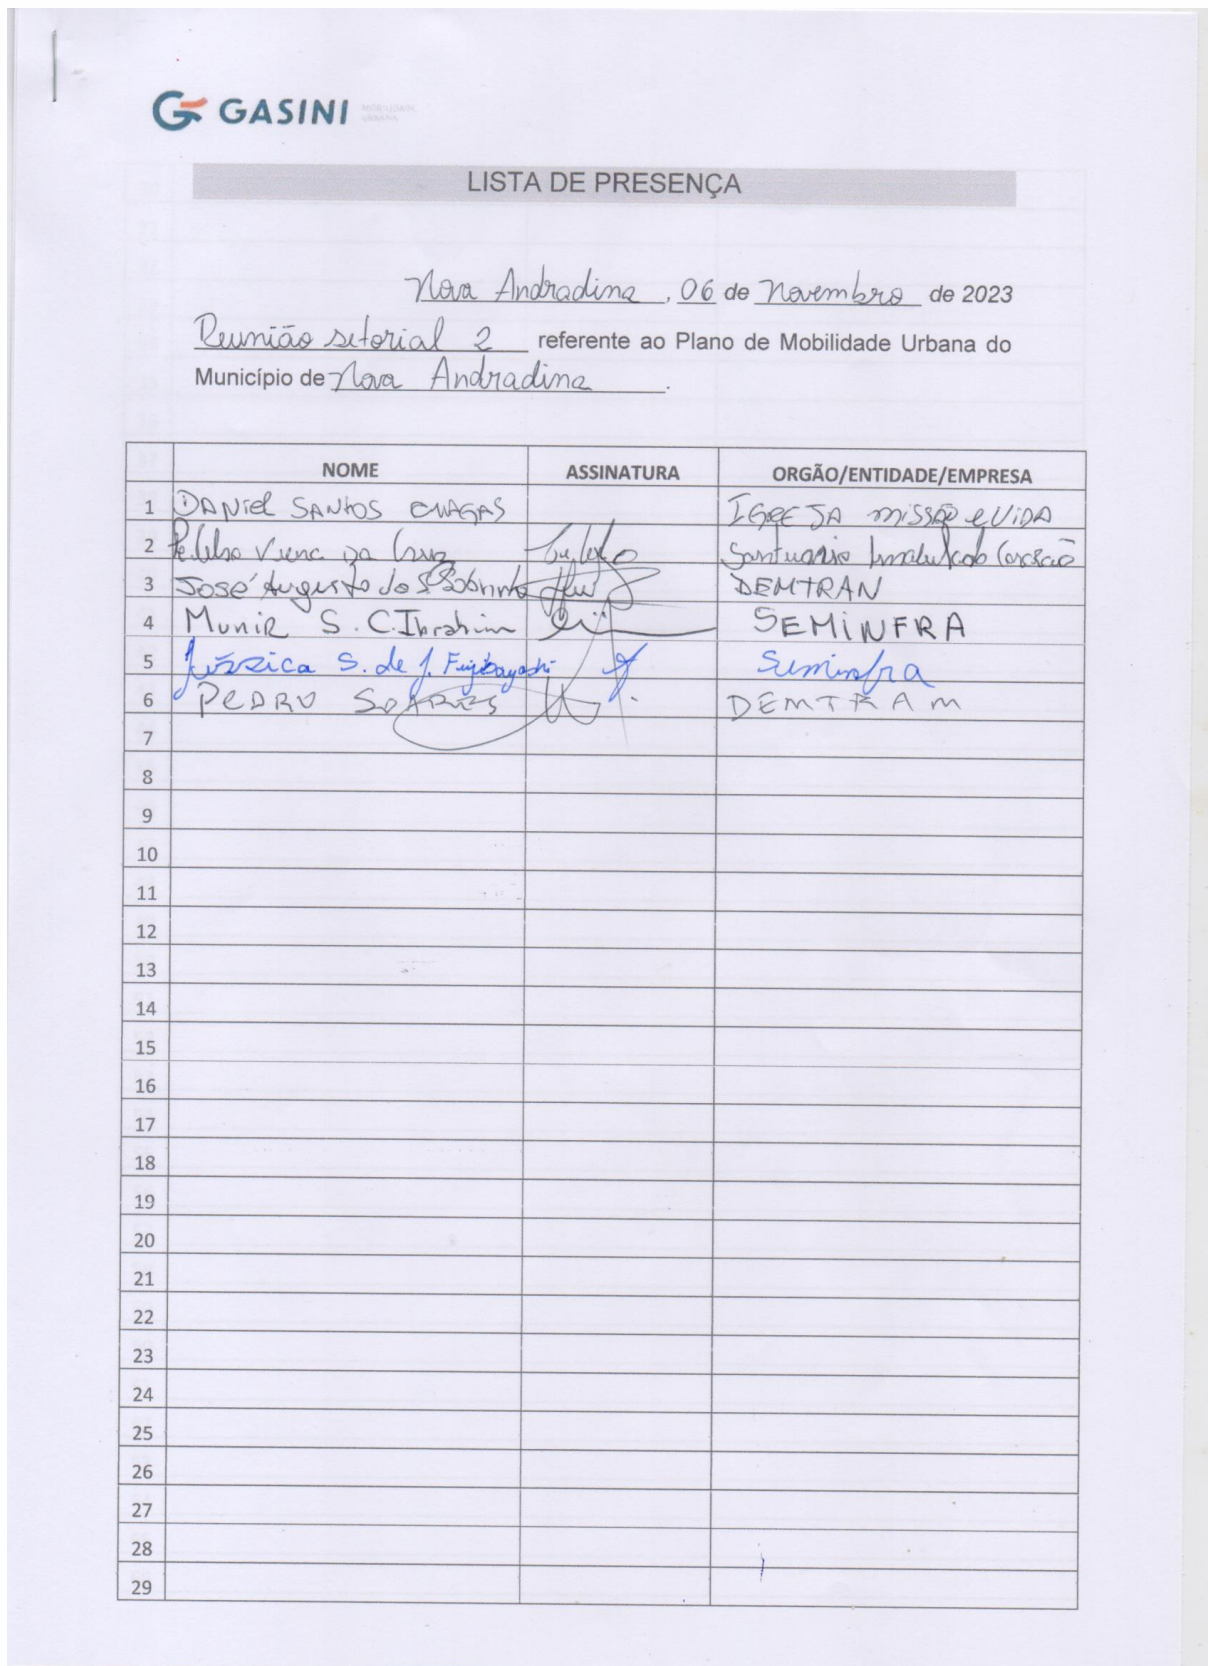 GASINI
LISTA DE PRESENÇA
Nova Andradina, 06 de Novembro de 2023
Reunião setorial 2 referente ao Plano de Mobilidade Urbana do
Município de Nova Andradina.
NOME ASSINATURA ORGÃO/ENTIDADE/EMPRESA
1 DANIEL SANTOS CHAGAS IGREJA MISSÃO e VIDA
2 Pe. Celso da Cruz Santuario Coração
3 José Augusto dos S. Sobrinho DEMTRAN
4 Munir S. C. Ibrahim SEMINFRA
5 Jéssica S. de J. Fujibayashi Seminfra
6 PEDRO SOARES DEMTRAM
7
8
9
10
11
12
13
14
15
16
17
18
19
20
21
22
23
24
25
26
27
28
29